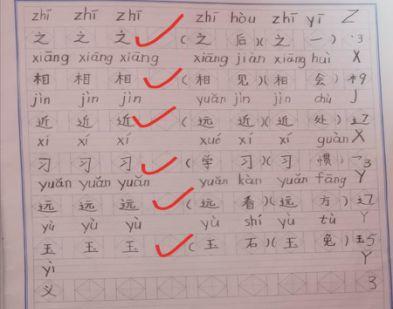 zhī zhī zhī zhī hòu zhī yī Z
之 之 之 (之 后)(之 一) 3
xiāng xiāng xiāng xiāng jiàn xiāng huì X
相 相 相 (相 见)(相 会) 9
jìn jìn jìn yuǎn jìn jìn chù J
近 近 近 (远 近)(近 处) 辶7
xí xí xí xué xí xí guàn X
习 习 习 (学 习)(习 惯) 3
yuǎn yuǎn yuǎn yuǎn kàn yuǎn fāng Y
远 远 远 (远 看)(远 方) 辶7
yù yù yù yù shí yù tù Y
玉 玉 玉 (玉 石)(玉 兔) 5
yì Y
义 3